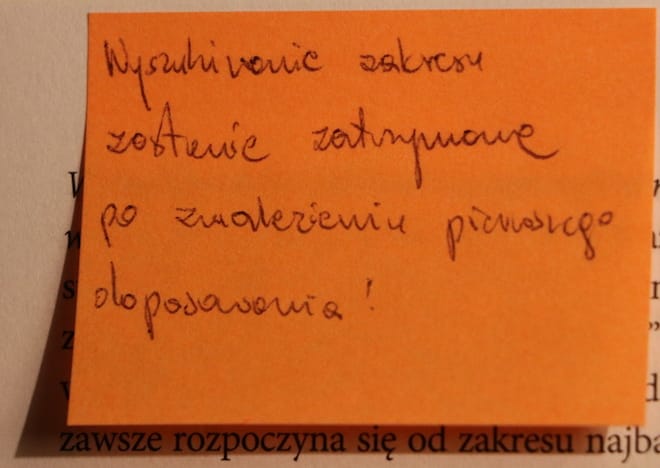 Wyszukiwanie zakresu
zostanie zatrzymane
po znalezieniu pierwszego
dopasowania!
zawsze rozpoczyna się od zakresu najba